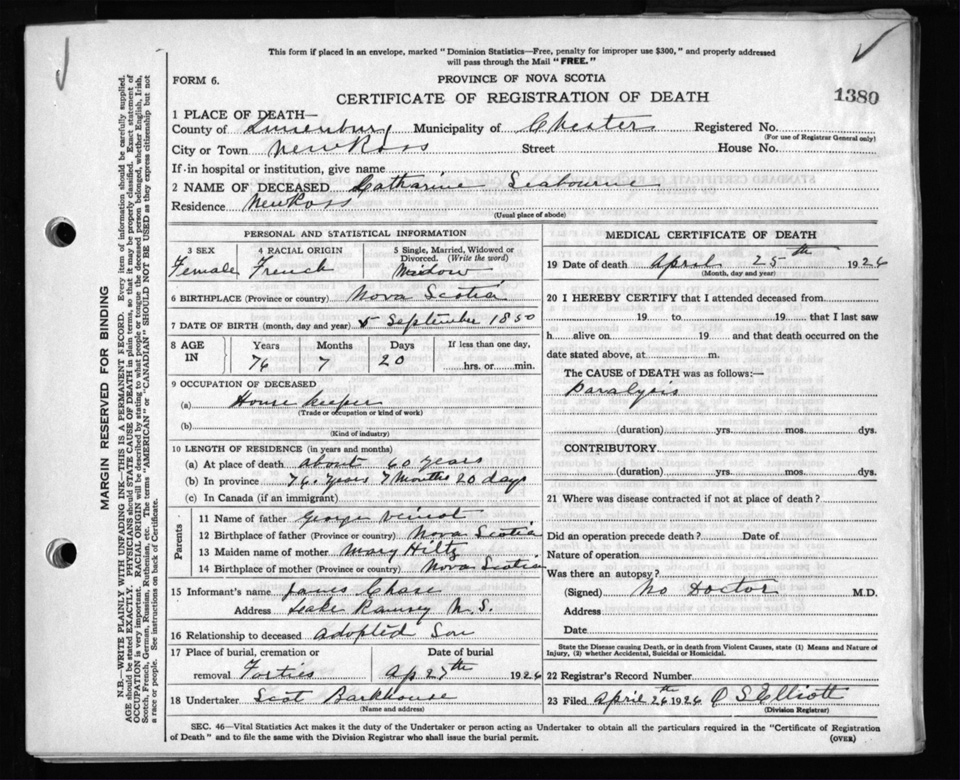 This form if placed in an envelope, marked "Dominion Statistics—Free, penalty for improper use $300," and properly addressed
will pass through the Mail "FREE."
FORM 6.
PROVINCE OF NOVA SCOTIA
CERTIFICATE OF REGISTRATION OF DEATH
1380
1 PLACE OF DEATH—
County of Lunenburg Municipality of Chester Registered No.
(For use of Registrar General only)
City or Town New Ross Street House No.
If in hospital or institution, give name
2 NAME OF DECEASED Catharine Seabourne
Residence New Ross
(Usual place of abode)
PERSONAL AND STATISTICAL INFORMATION
3 SEX 4 RACIAL ORIGIN 5 Single, Married, Widowed or Divorced. (Write the word)
Female French Widow
6 BIRTHPLACE (Province or country) Nova Scotia
7 DATE OF BIRTH (month, day and year) 5 September 1850
8 AGE IN Years Months Days If less than one day,
76 7 20 hrs. or min.
9 OCCUPATION OF DECEASED
(a) House keeper
(Trade or occupation or kind of work)
(b)
(Kind of industry)
10 LENGTH OF RESIDENCE (in years and months)
(a) At place of death about 60 years
(b) In province 76 years 7 months 20 days
(c) In Canada (if an immigrant)
Parents
11 Name of father George Veinot
12 Birthplace of father (Province or country) Nova Scotia
13 Maiden name of mother Mary Hiltz
14 Birthplace of mother (Province or country) Nova Scotia
15 Informant's name James Chase
Address Leake Ramsey N.S.
16 Relationship to deceased adopted Son
17 Place of burial, cremation or Date of burial
removal Forties Ap 27th 1926
18 Undertaker Scot Barkhouse
(Name and address)
MEDICAL CERTIFICATE OF DEATH
19 Date of death April 25th 1926
(Month, day and year)
20 I HEREBY CERTIFY that I attended deceased from
19 to 19 that I last saw
h alive on 19 and that death occurred on the
date stated above, at m.
The CAUSE OF DEATH was as follows:—
Paralysis
(duration) yrs. mos. dys.
CONTRIBUTORY
(duration) yrs. mos. dys.
21 Where was disease contracted if not at place of death?
Did an operation precede death? Date of
Nature of operation
Was there an autopsy?
(Signed) No Doctor M.D.
Address
Date
State the Disease causing Death, or in death from Violent Causes, state (1) Means and Nature of
Injury, (2) whether Accidental, Suicidal or Homicidal.
22 Registrar's Record Number
23 Filed April 26th 1926 C S Elliott
(Division Registrar)
SEC. 46—Vital Statistics Act makes it the duty of the Undertaker or person acting as Undertaker to obtain all the particulars required in the "Certificate of Registration
of Death" and to file the same with the Division Registrar who shall issue the burial permit.
(OVER)
MARGIN RESERVED FOR BINDING
N.B.—WRITE PLAINLY WITH UNFADING INK—THIS IS A PERMANENT RECORD. Every item of information should be carefully supplied.
AGE should be stated EXACTLY. PHYSICIANS should STATE CAUSE OF DEATH in plain terms, so that it may be properly classified. Exact statement of
OCCUPATION is very important. RACIAL ORIGIN will be described by stating to what people or tongue the deceased person belonged, whether English, Irish,
Scotch, French, German, Russian, Ruthenian, etc. The terms "AMERICAN" or "CANADIAN" SHOULD NOT BE USED as they express citizenship but not
a race or people. See instructions on back of Certificate.